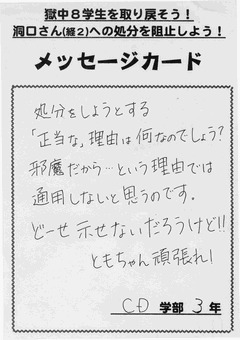 獄中８学生を取り戻そう！
洞口さん(経2)への処分を阻止しよう！
メッセージカード
処分をしようとする
「正当な」理由は何なのでしょう?
邪魔だから…という理由では
通用しないと思うのです。
どーせ示せないだろうけど!!
ともちゃん頑張れ!
学部 3 年